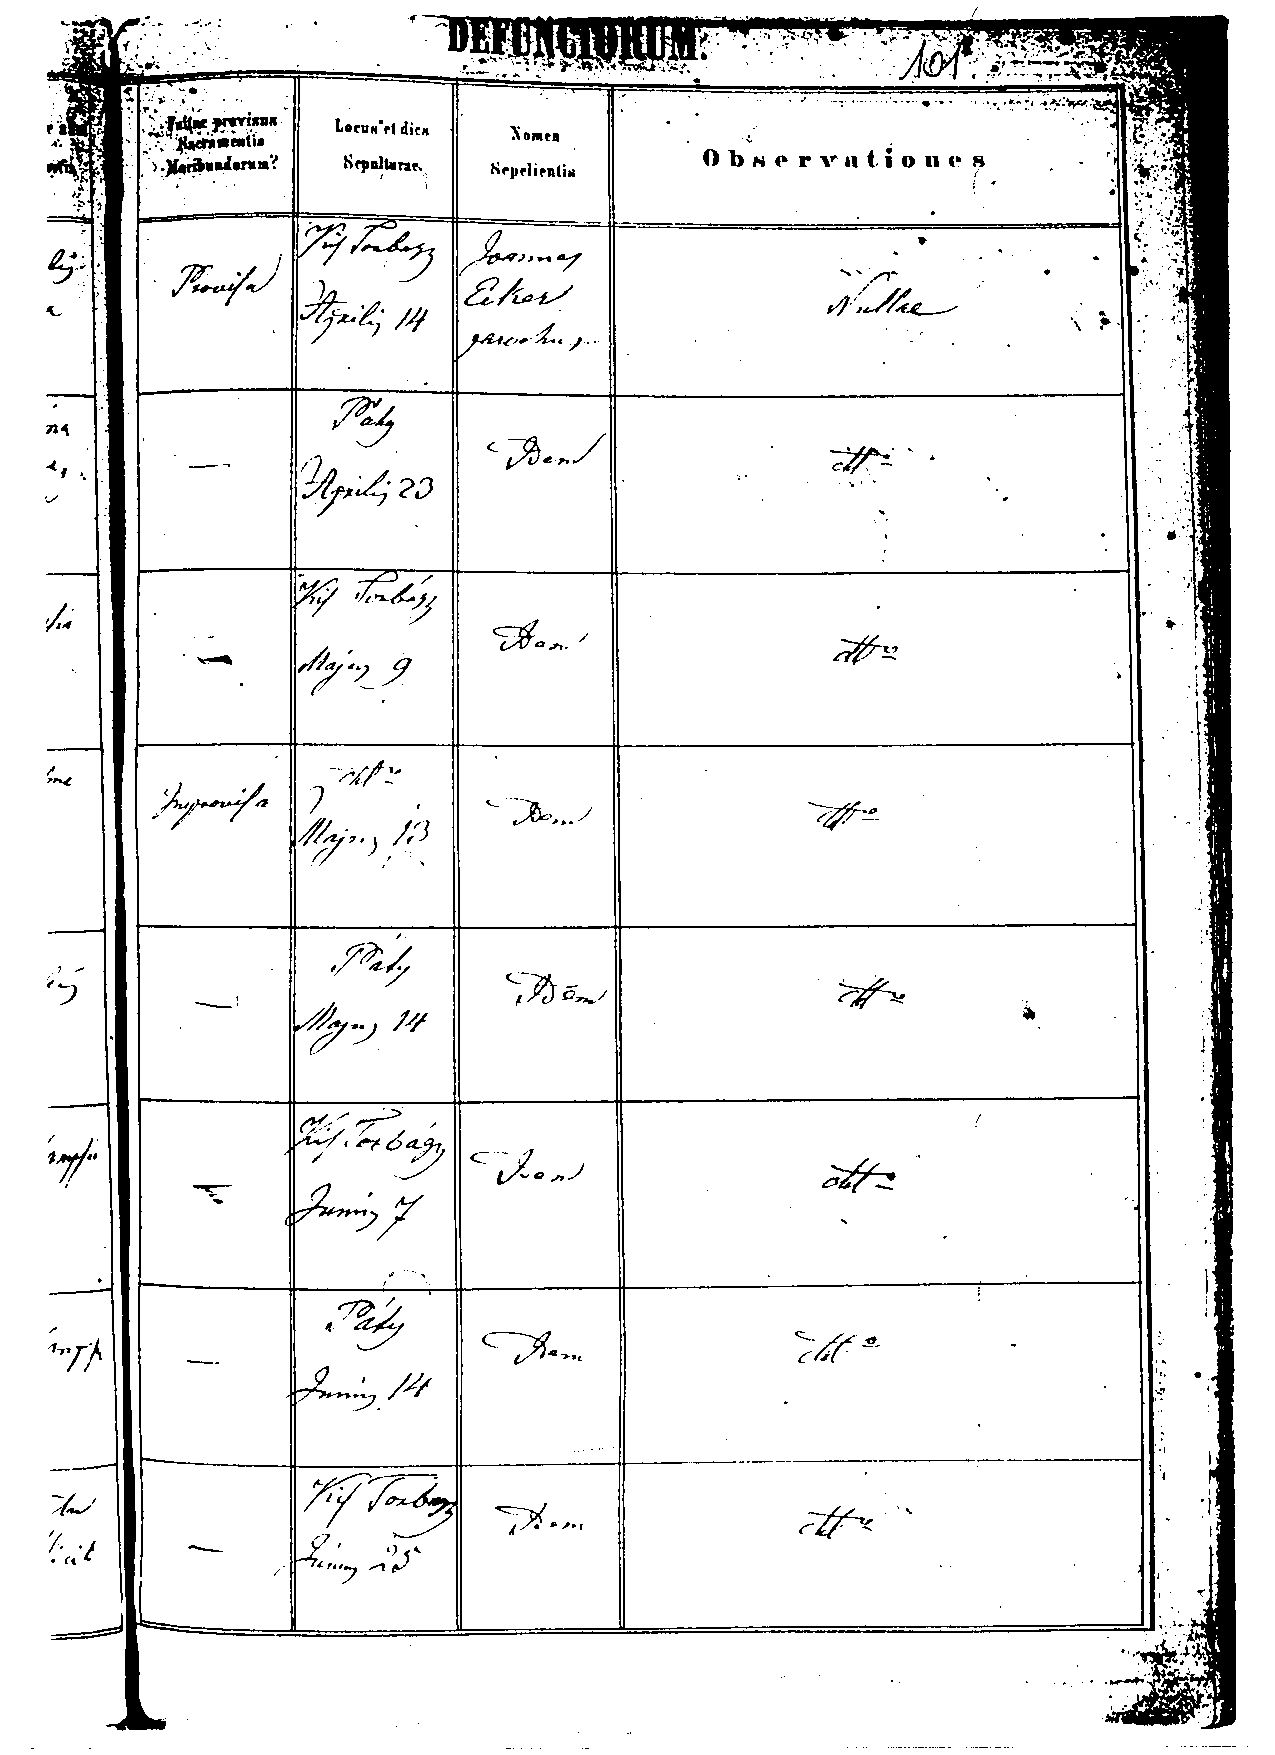 DEFUNCTORUM.
101.
Fuitne provisus
Sacramentis
Moribundorum?
Locus et dies
Sepulturae.
Nomen
Sepelientis
Observationes
Provisa
Kis Torbagy
Aprilis 14
Joannes
Ecker
parochus
Nullae
—
Páty
Aprilis 23
Idem
dtto
—
Kis Torbágy
Majus 9
Idem
dtto
Improvisa
dtto
Majus 13
Idem
dtto
—
Páty
Majus 14
Idem
dtto
—
Kis Torbágy
Junius 7
Idem
dtto
—
Páty
Junius 14
Idem
dtto
—
Kis Torbagy
Junius 25
Idem
dtto